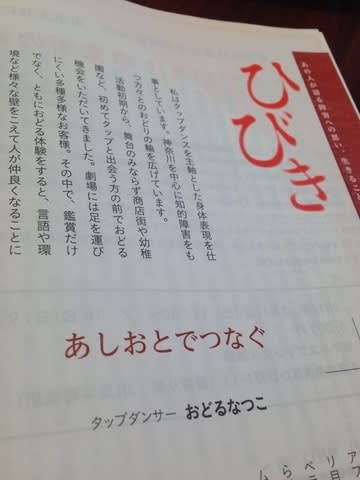 あの人が語る障害への思い、生きること
ひびき
私はタップダンスを主軸とした身体表現を仕
事としています。神奈川を中心に知的障害をも
つ方々とのおどりの輪を広げています。
活動初期から、舞台のみならず商店街や幼稚
園など、初めてタップと出会う方の前でおどる
機会をいただいてきました。劇場には足を運び
にくい多種多様なお客様。その中で、鑑賞だけ
でなく、ともにおどる体験をすると、言語や環
境など様々な壁をこえて人が仲良くなることに
あしおとでつなぐ
タップダンサー おどるなつこ